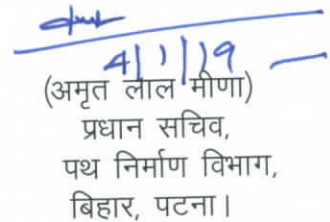 4/1/19
(अमृत लाल मीणा)
प्रधान सचिव,
पथ निर्माण विभाग,
बिहार, पटना।